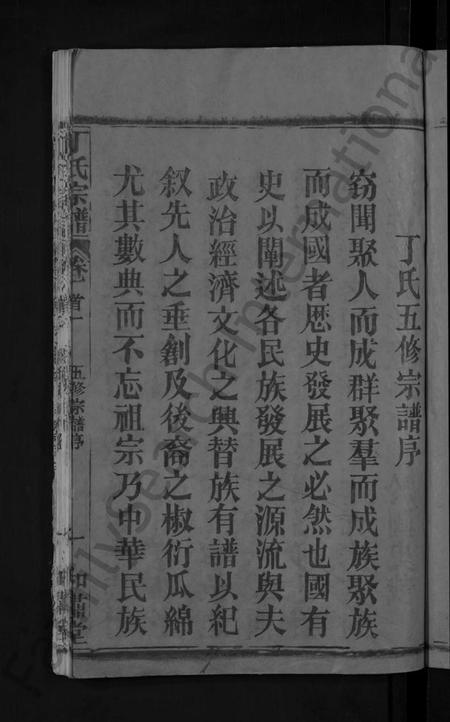 丁氏五修宗譜序
窃聞聚人而成群聚羣而成族聚族
而成國者歷史發展之必然也國有
史以闡述各民族發展之源流與夫
政治經濟文化之興替族有譜以紀
叙先人之垂創及後裔之椒衍瓜綿
尤其數典而不忘祖宗乃中華民族
丁氏宗譜 卷首一 五修宗譜序 一
FamilySearch International